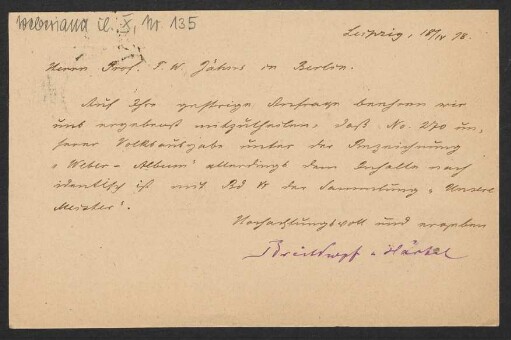 Weberiana Cl. X, Nr. 135
Leipzig, 18/IV 78.
Herrn Prof. F. W. Jähns in Berlin.
Auf Ihre gestrige Anfrage beehren wir
uns ergebenst mitzutheilen, daß No. 270 un„
serer Volksausgabe unter der Bezeichnung
„Weber-Album“ allerdings dem Inhalte nach
identisch ist mit Bd der Sammlung „Unsere
Meister“.
Hochachtungsvoll und ergeben
Breitkopf u Härtel